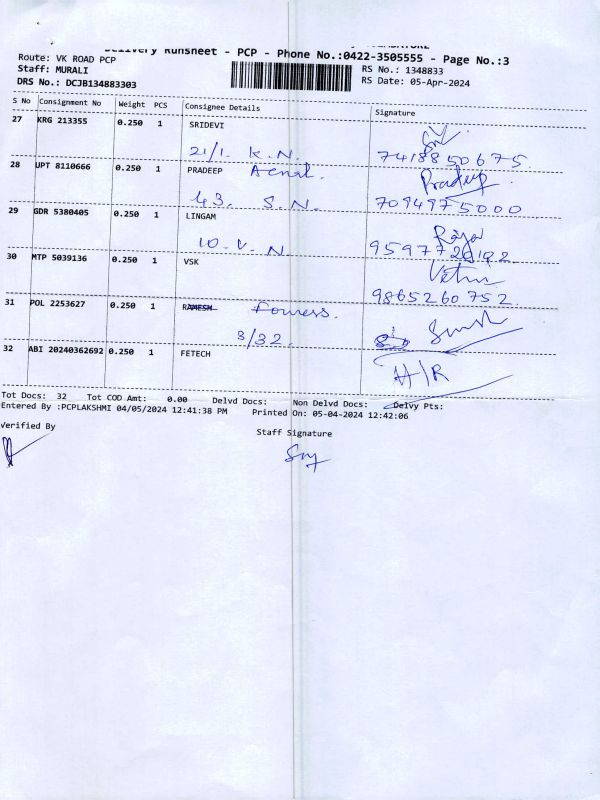 Delivery Runsheet - PCP - Phone No.:0422-3505555 - Page No.:3
Route: VK ROAD PCP
Staff: MURALI
RS No.: 1348833
DRS No.: DCJB134883303
RS Date: 05-Apr-2024
S No Consignment No Weight PCS Consignee Details Signature
27 KRG 213355 0.250 1 SRIDEVI
21/1. K.N. 7418850675
28 UPT 8110666 0.250 1 PRADEEP Pradeep
43. S.N. 7094975000
29 GDR 5380405 0.250 1 LINGAM
10.V.N Raja
9597728192
30 MTP 5039136 0.250 1 VSK Vetri
9865260752.
31 POL 2253627 0.250 1 RAMESH
3/32.
32 ABI 20240362692 0.250 1 FETECH H/R
Tot Docs: 32 Tot COD Amt: 0.00 Delvd Docs: Non Delvd Docs: Delvy Pts:
Entered By :PCPLAKSHMI 04/05/2024 12:41:38 PM Printed On: 05-04-2024 12:42:06
Verified By
Staff Signature